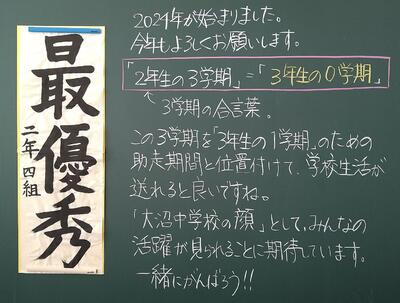 2024年が始まりました。
今年もよろしくお願いします。
「2年生の3学期」=「3年生の0学期」
↑
3学期の合言葉。
この3学期を「3年生の1学期」のための
助走期間と位置付けて、学校生活が
送れると良いですね。
「大沼中学校の顔」として、みんなの
活躍が見られることに期待しています。
一緒にがんばろう!!
最優秀
二年四組